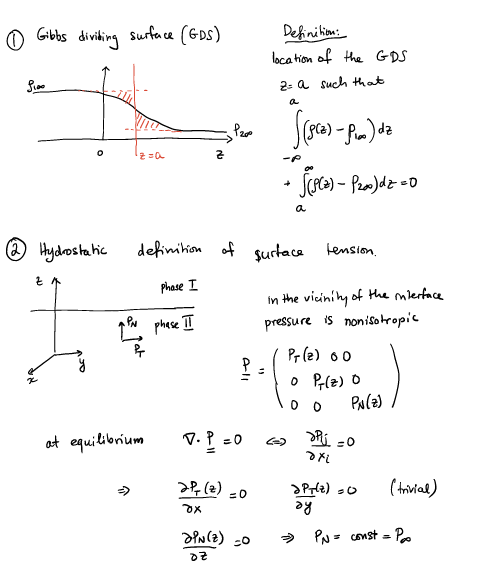 ① Gibbs dividing surface (GDS)
ρ1∞
ρ2∞
0
z=a
z
Definition:
location of the GDS
z=a such that
∫_{-∞}^{a} (ρ(z) - ρ1∞) dz
+ ∫_{a}^{∞} (ρ(z) - ρ2∞) dz = 0
② Hydrostatic definition of surface tension.
z
phase I
phase II
P_N
P_T
y
x
in the vicinity of the interface
pressure is nonisotropic
P = ( P_T(z) 0 0
0 P_T(z) 0
0 0 P_N(z) )
at equilibrium ∇·P = 0 ⇔ ∂P_ij/∂x_i = 0
⇒ ∂P_T(z)/∂x = 0 ∂P_T(z)/∂y = 0 (trivial)
∂P_N(z)/∂z = 0 ⇒ P_N = const = P∞